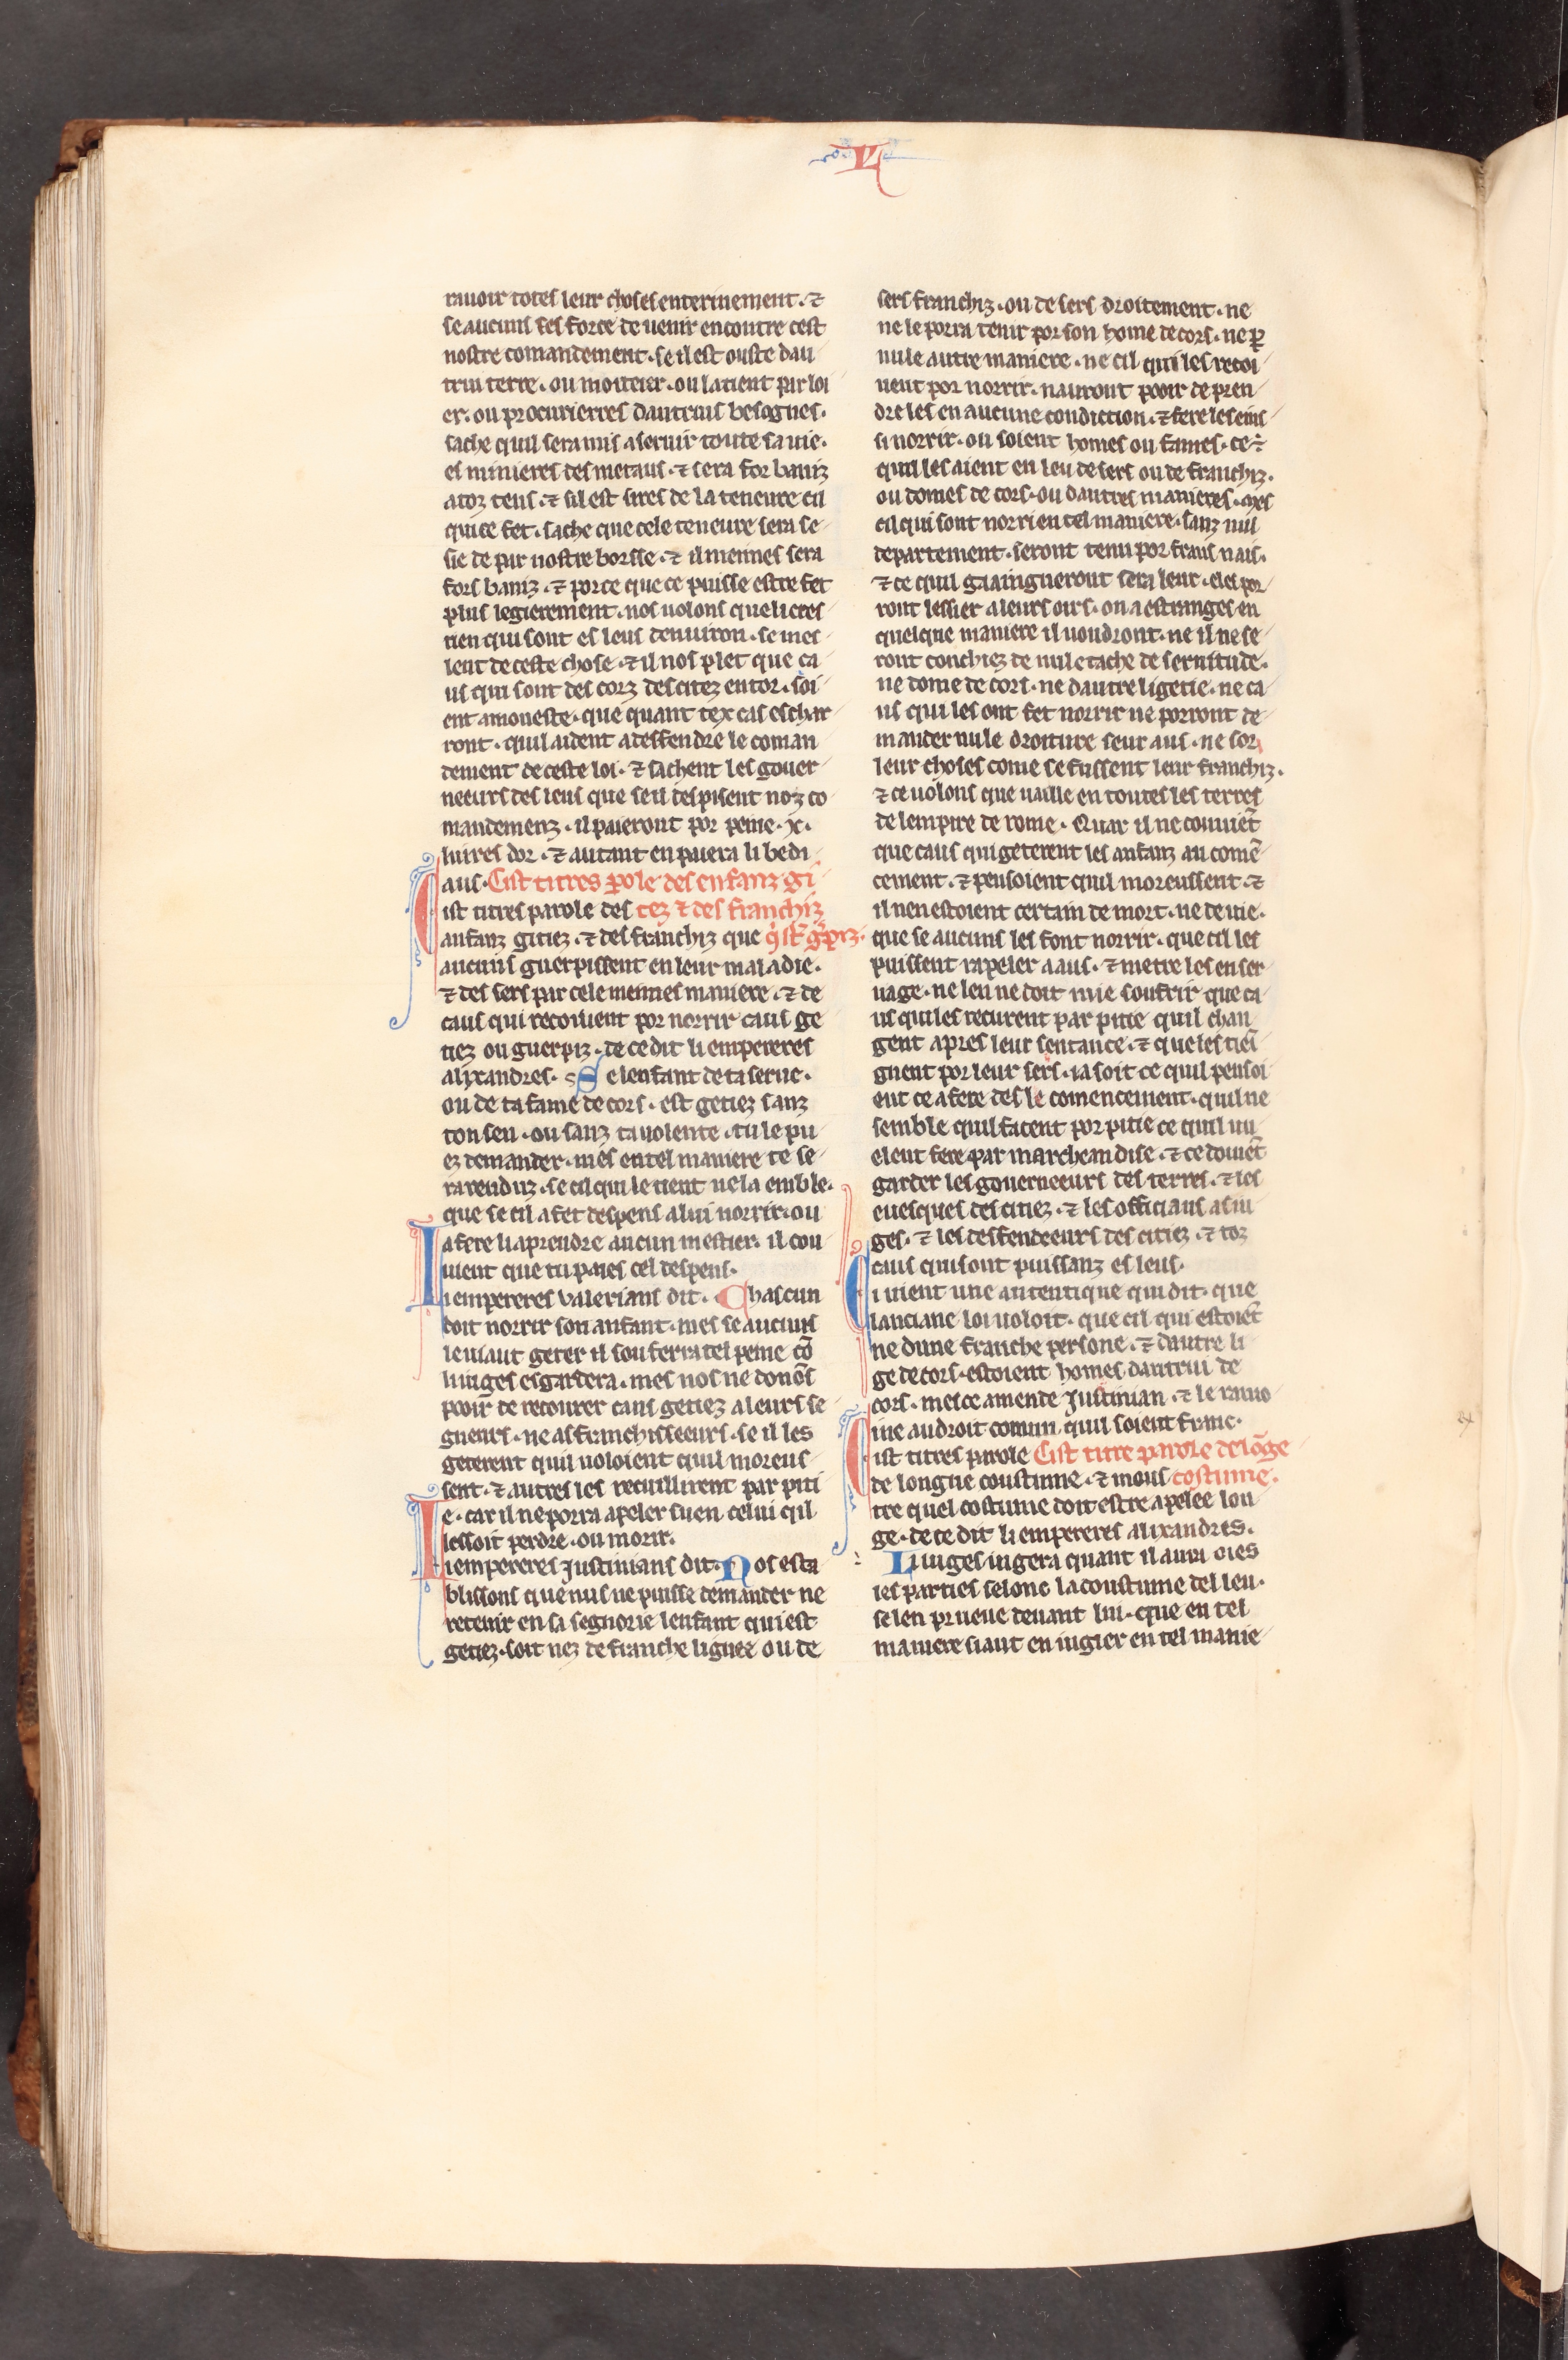 VI
rauoir totes leur choses enterinement · ⁊
se aucuns fes force de uenir encontre cest
nostre comandement · se il est ouste dau
trui terre · ou moiteier · ou la tient par loi
er · ou procurierres dautruis besognes ·
sache quil sera mis a seruir toute sa uie ·
es minieres des metaus · ⁊ sera for baniz
a toz tens · ⁊ sil est sires de la teneure cil
qui ce fet · sache que cele teneure sera se
sie de par nostre borsse · ⁊ il meinnes sera
fors baniz · ⁊ por ce que ce puisse estre fet
plus legierement · nos uolons que li cres
tien qui sont es leus denuiron · se mes
lent de ceste chose · ⁊ il nos plet que ca
us qui sont des corz des citez entor · soi
ent amoneste · que quant tex cas eschar
ront · quil aident a deffendre le coman
dement de ceste loi · ⁊ sachent les gouer
neeurs des leus que se il despisent noz co
mandemenz · il paieront por peine · x ·
liures dor · ⁊ autant en paiera li bedi
aus · Cist titres ꝑole des enfanz gi
Cist titres parole des tez ⁊ des franchiz
anfanz gitiez · ⁊ des franchiz que q̇ sūt gͥꝑiz ·
aucuns guerpissent en leur maladie ·
⁊ des sers par cele meinnes maniere · ⁊ de
caus qui recoiuent por norrir caus ge
tiez ou guerpiz · de ce dit li empereres
alixandres · Se lenfant de ta serue ·
ou de ta fame de cors · est getiez sanz
ton seu · ou sanz ta uolente · tu le pu
ez demander · mes en tel maniere te se
ra renduz · se cil qui le tient ne la emble ·
que se cil a fet despens a lui norrir · ou
a fere li aprendre aucun mestier · il cou
uient que tu paies cel despens ·
Li empereres valerians dit · Chascun
doit norrir son anfant · mes se aucuns
le uiaut geter il souferra tel peine cō
li iuges esgardera · mes nos ne donōs
pooir de recourer caus getiez a leurs se
gneurs · ne as franchisseeurs · se il les
geterent quil uoloient quil moreus
sent · ⁊ autres les recuillirent par piti
e · car il ne porra apeler suen celui qil
lessoit perdre · ou morir ·
Li empereres Justinians dit · Nos esta
blissons que nus ne puisse demander ne
retenir en sa segnorie lenfant qui est
getiez · soit nez de franche lignee ou de
sers franchiz · ou de sers droitement · ne
ne le porra tenir por son home de cors · ne ꝑ
nule autre maniere · ne cil qui les recoi
uent por norrir · nauront pooir de pren
dre les en aucune condiction · ⁊ fere les ein
si norrir · ou soient homes ou fames · ce ē
quil les aient en leu de sers ou de franchiz ·
ou domes de cors · ou dautres manieres · mes
cil qui sont norri en tel maniere · sanz nul
departement · seront tenu por frans nais ·
⁊ ce quil gaaingneront sera leur · ⁊ les por
ront lessier a leurs oirs · ou a estranges en
quelque maniere il uoudront · ne il ne se
ront conchiez de nule tache de seruitude ·
ne dome de cors · ne dautre ligetie · ne ca
us qui les ont fet norrir ne porront de
mander nule droiture seur aus · ne sor
leur choses come se fussent leur franchiz ·
⁊ ce uolons que uaille en toutes les terres
de lempire de rome · Quar il ne conuiēt
que caus qui geterent les anfanz au comē
cement · ⁊ pensoient quil moreussent · ⁊
il nen estoient certain de mort · ne de uie ·
que se aucuns les font norrir · que cil les
puissent rapeler a aus · ⁊ metre les en ser
uage · ne len ne doit mie soufrir que ca
us qui les recurent par pitie quil chan
gent apres leur sentance · ⁊ que les tiei
gnent por leur sers · ia soit ce quil pensoi
ent ce a fere des le comencement · quil ne
semble quil facent por pitie ce quil uu
elent fere par marcheandise · ⁊ ce doiuēt
garder les gouerneeurs des terres · ⁊ les
euesques des citiez · ⁊ les officiaus as iu
ges · ⁊ les desfendeeurs des citiez · ⁊ toz
caus qui sont puissanz es leus ·
Ci uient une autentique qui dit · que
lanciane loi uoloit · que cil qui estoiēt
ne dune franche persone · ⁊ dautre li
ge de cors · estoient homes dautrui de
cors · mes ce amende Justinian · ⁊ le ramo
ine au droit comun quil soient franc ·
Cist titres parole Cist titre parole de lōge
de longue coustume · ⁊ mous costume ·
tre quel costume doit estre apelee lon
ge · de ce dit li empereres alixandres ·
Li iuges iugera quant il aura oies
les parties selonc la coustume del leu ·
se len prueue deuant lui · que en tel
maniere siaut en iugier en tel manie